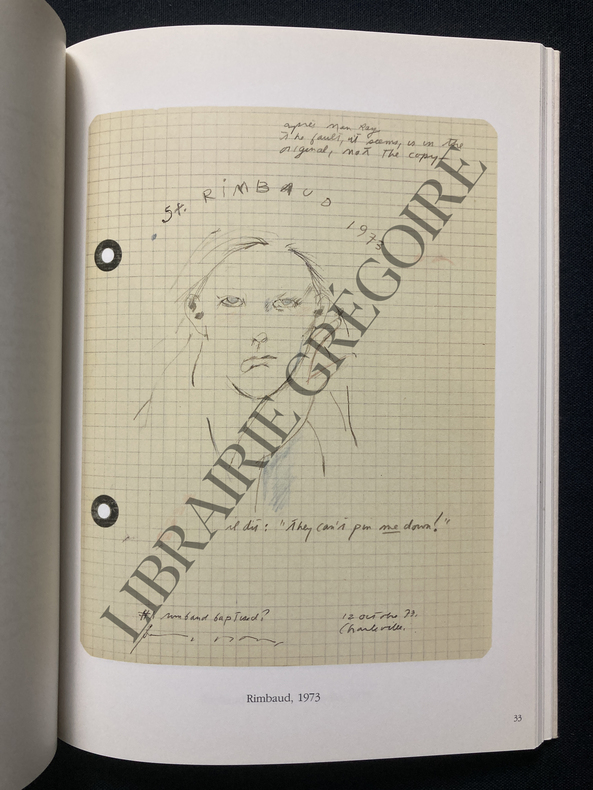 après Man Ray
The fault, it seems, is in the
original, not the copy—
St. RIMBAUD
1973
il dit: "They can't pin me down!"
baptized?
12 octobre 73.
Charleville.
LIBRAIRIE GRÉGOIRE
Rimbaud, 1973
33